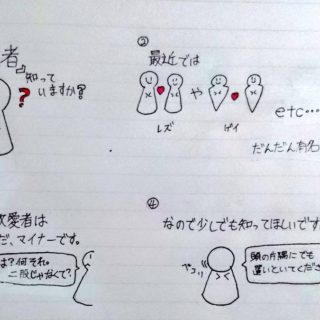 者』
知って
いますか?
?
②
最近では
や
レズ ゲイ
etc…
だんだん有名
愛者は
だ、マイナーです。
は?何それ。
二股じゃなくて?
④
なので少しでも知ってほしいです
ペコリ
頭の片隅にでも
置いといてくださ